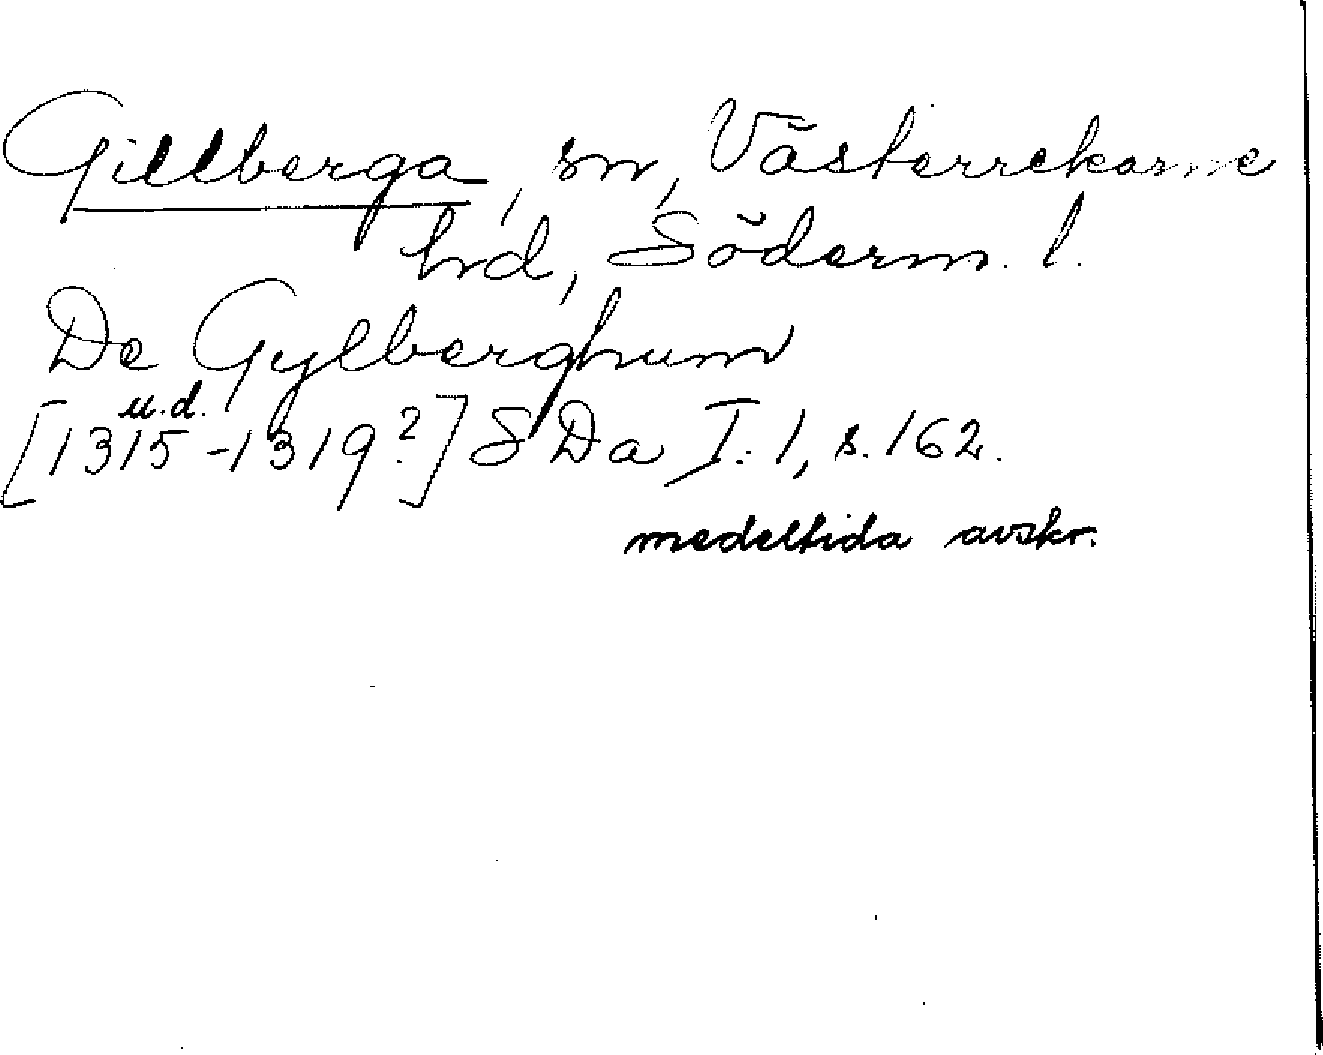 Gillberga, sn, Västerrekarne
hrd, Söderm. l.
De Gylberghum
u.d.
[1315-1319?] SDa I:1, s.162.
medeltida avskr.